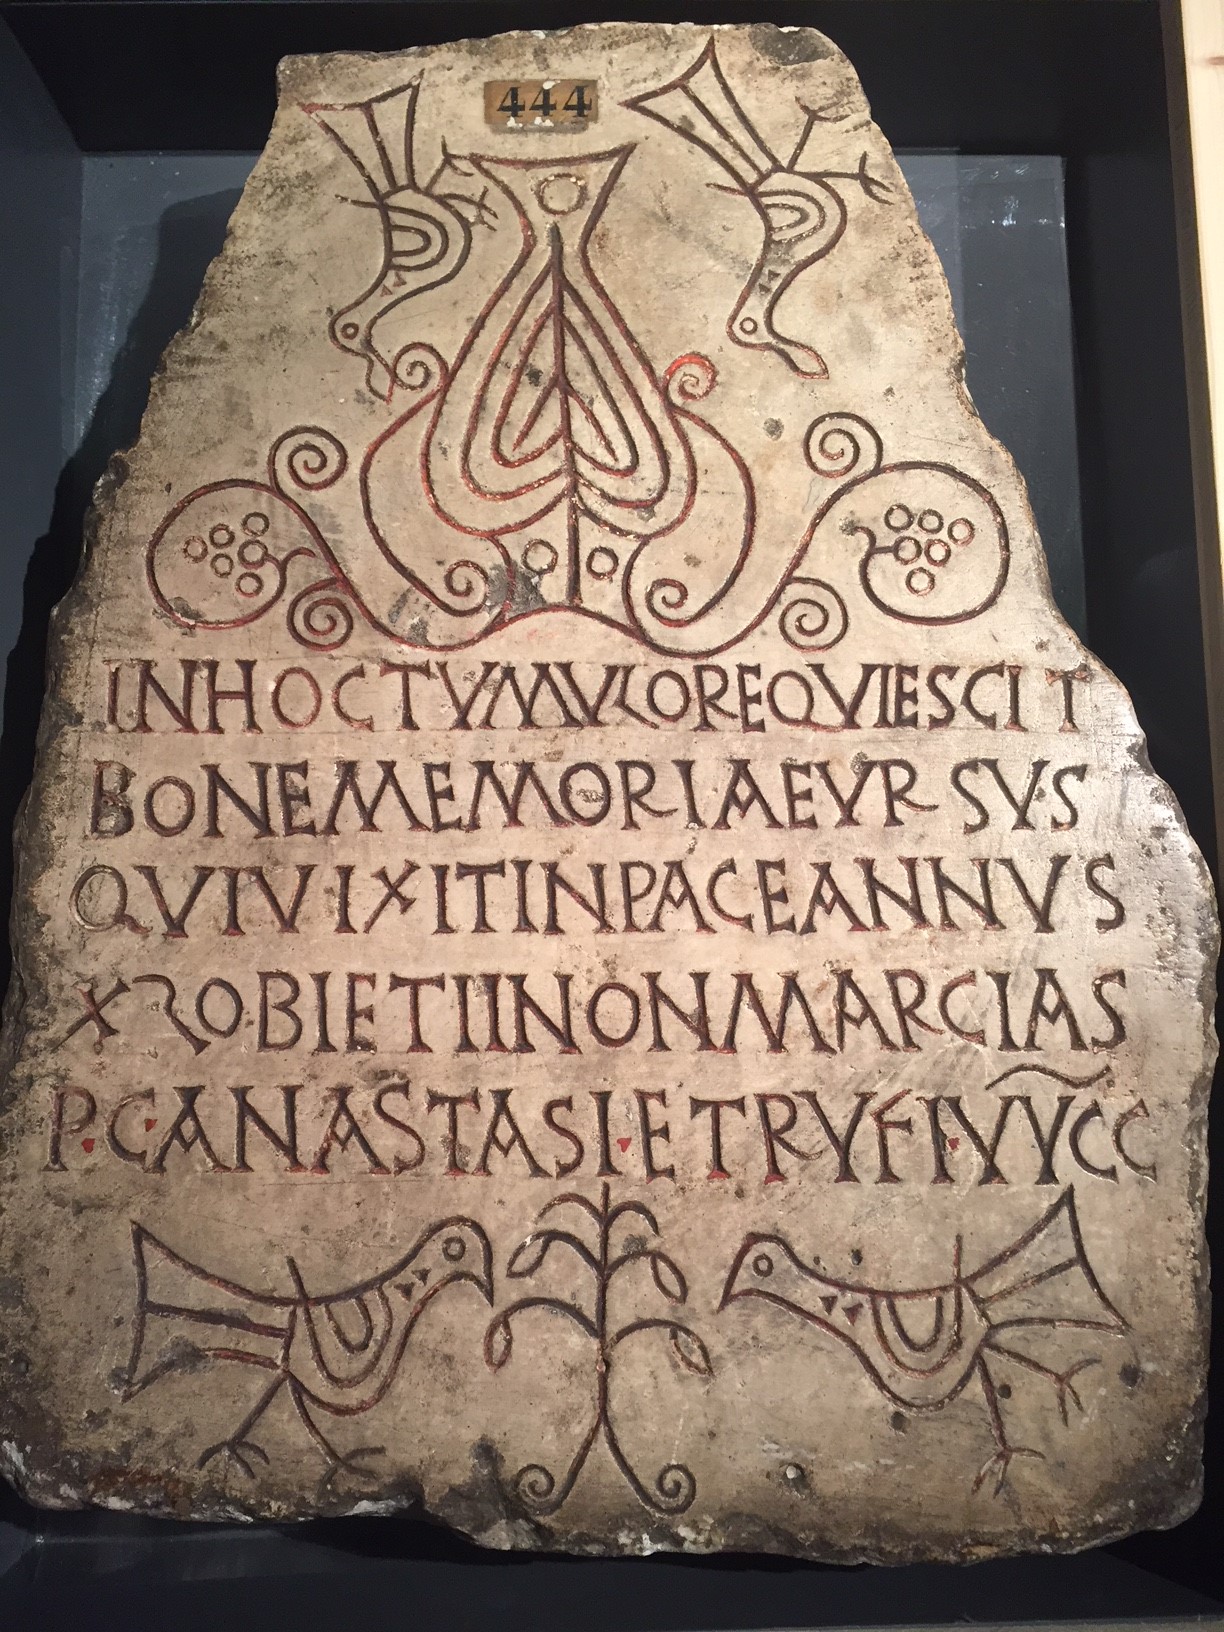 444
INHOCTVMVLOREQVIESCIT
BONEMEMORIAEVRSVS
QVIVIXITINPACEANNVS
XꙅOBIETIINONMARCIAS
P·C·ANASTASI·ETRVFI·VVCC